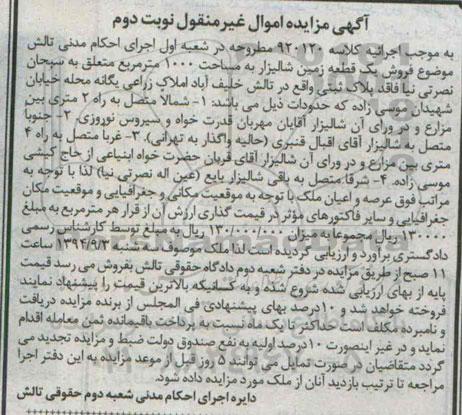 آگهی مزایده اموال غیر منقول نوبت دوم
به موجب اجرائیه کلاسه ۹۲۰۱۲۰ مطروحه در شعبه اول اجرای احکام مدنی تالش
موضوع فروش یک قطعه زمین شالیزار به مساحت ۱۰۰۰ مترمربع متعلق به سبحان
نصرتی نیا فاقد پلاک ثبتی واقع در تالش خلیف آباد املاک زراعی یگانه محله خیابان
شهیدان موسی زاده که حدودات ذیل می باشد: ۱- شمالا متصل به راه ۲ متری بین
مزارع و در ورای آن شالیزار آقایان مهربان قدرت خواه و سیروس نوروزی ۲- جنوبا
متصل به شالیزار آقای اقبال قنبری (حالیه واگذار به تهرانی). ۳- غربا متصل به راه ۴
متری بین مزارع و در ورای آن شالیزار آقای قربان حضرت خواه ابتیاعی از حاج کیشی
موسی زاده. ۴- شرقا متصل به باقی شالیزار بایع (عین اله نصرتی نیا) لذا با توجه به
مراتب فوق عرصه و اعیان ملک با توجه به موقعیت مکانی و جغرافیایی و موقعیت مکان
جغرافیایی و سایر فاکتورهای مؤثر در قیمت گذاری ارزش آن از قرار هر مترمربع به مبلغ
۱۳۰۰۰۰ ریال مجموعا به میزان ۱۳۰/۰۰۰/۰۰۰ ریال به مبلغ توسط کارشناس رسمی
دادگستری برآورد و ارزیابی گردیده است لذا ملک موصوف سه شنبه ۱۳۹۴/۹/۳ ساعت
۱۱ صبح از طریق مزایده در دفتر شعبه دوم دادگاه حقوقی تالش بفروش می رسد قیمت
پایه از بهای ارزیابی شده شروع شده و به کسانیکه بالاترین قیمت را پیشنهاد نمایند
فروخته خواهد شد و ۱۰درصد بهای پیشنهادی فی المجلس از برنده مزایده دریافت
و نامبرده مکلف است حداکثر تا یک ماه نسبت به پرداخت باقیمانده ثمن معامله اقدام
نماید و در غیر اینصورت ۱۰درصد اولیه به نفع صندوق دولت ضبط و مزایده تجدید می
گردد متقاضیان در صورت تمایل می توانند ۵ روز قبل از موعد مزایده به این دفتر اجرا
مراجعه تا ترتیب بازدید آنان از ملک مورد مزایده داده شود.
دایره اجرای احکام مدنی شعبه دوم حقوقی تالش